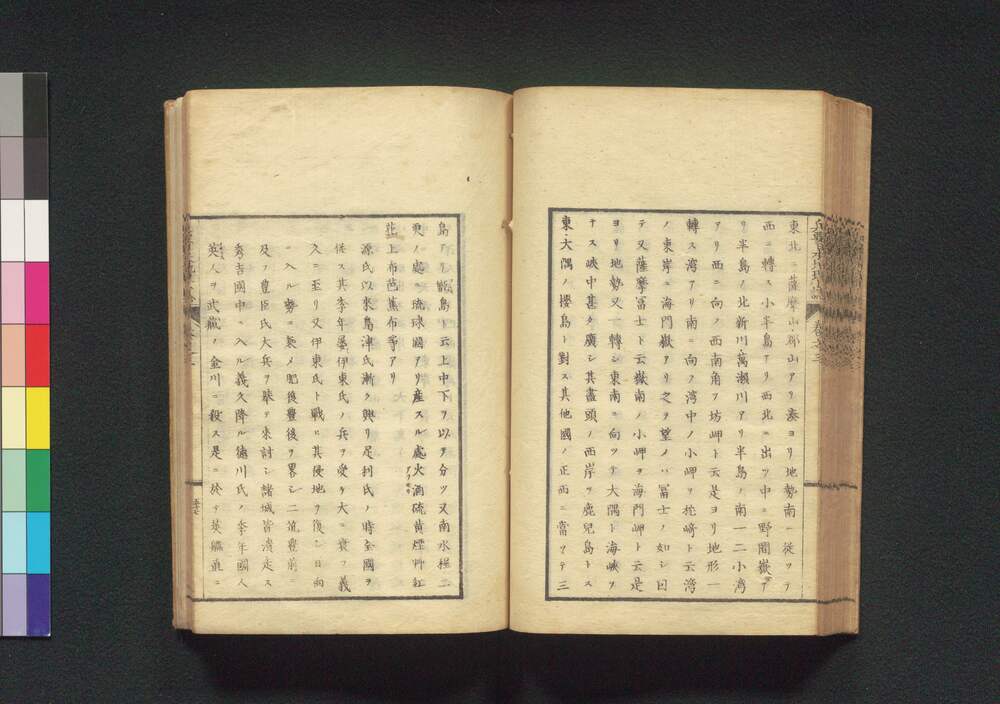 東北ニ薩摩山郡山アリ湊ヨリ地勢南ニ従ツテ
西ニ轉ス小半島アリ西北ニ出ツ中ニ野間嶽ア
リ半島ノ北新川萬瀬川アリ半島ノ南一二小湾
アリ西ニ向ノ西南角ヲ坊岬ト云是ヨリ地形一
轉ス湾アリ南ニ向フ湾中ノ小岬ヲ枕﨑ト云湾
ノ東岸ニ海門嶽アリ之ヲ望メハ冨士ノ如シ因
テ又薩摩冨士ト云嶽南ノ小岬ヲ海門岬ト云是
ヨリ地勢又一轉シ東南ニ向ツテ大隅ト海峡ヲ
ナス峡中甚タ廣シ其盡頭ノ西岸ヲ鹿児島トス
東大隅ノ桜島ト對ス其他國ノ正西ニ當ツテ三
島アリ甑島ト云上中下ヲ以テ分ツ又南水程二
ノ處ニ琉球國アリ産スル處火酒硫黄煙艸紅
上布芭蕉布等アリ
源氏以来島津氏漸ク興リ足利氏ノ時全國ヲ
任ス其季年屡伊東氏ノ兵ヲ受ケ大ニ衰フ義
久ニ至リ又伊東氏ト戰ヒ其侵地ヲ復シ日向
ニ入ル勢ニ乗メ肥後豊後ヲ畧シ二筑豊前ニ
及フ豊臣氏大兵ヲ擧ケ来討シ諸城皆潰走ス
秀吉國中ニ入ル義久降ル徳川氏ノ季年國人
英人ヲ武蔵ノ金川ニ殺ス是ニ於テ英